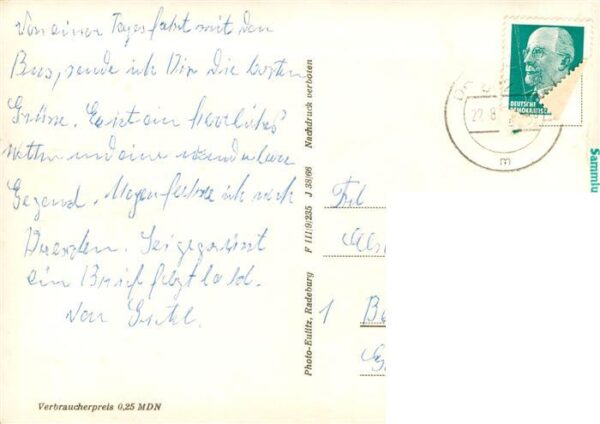 Von einer Tagesfahrt mit dem
Bus, sende ich Dir die besten
Grüsse. Es ist ein herrliches
Wetter und eine wunderbare
Gegend. Morgen fahre ich nach
Dresden. Sei gegrüsst
ein Brief folgt bald.
Von
Verbraucherpreis 0,25 MDN
Photo-Eulitz, Radeburg
F 111/9/235 J 38/66
Nachdruck verboten
Frl
1
DEUTSCHE
DEMOKRATISCHE
22.8
m
Sammlu